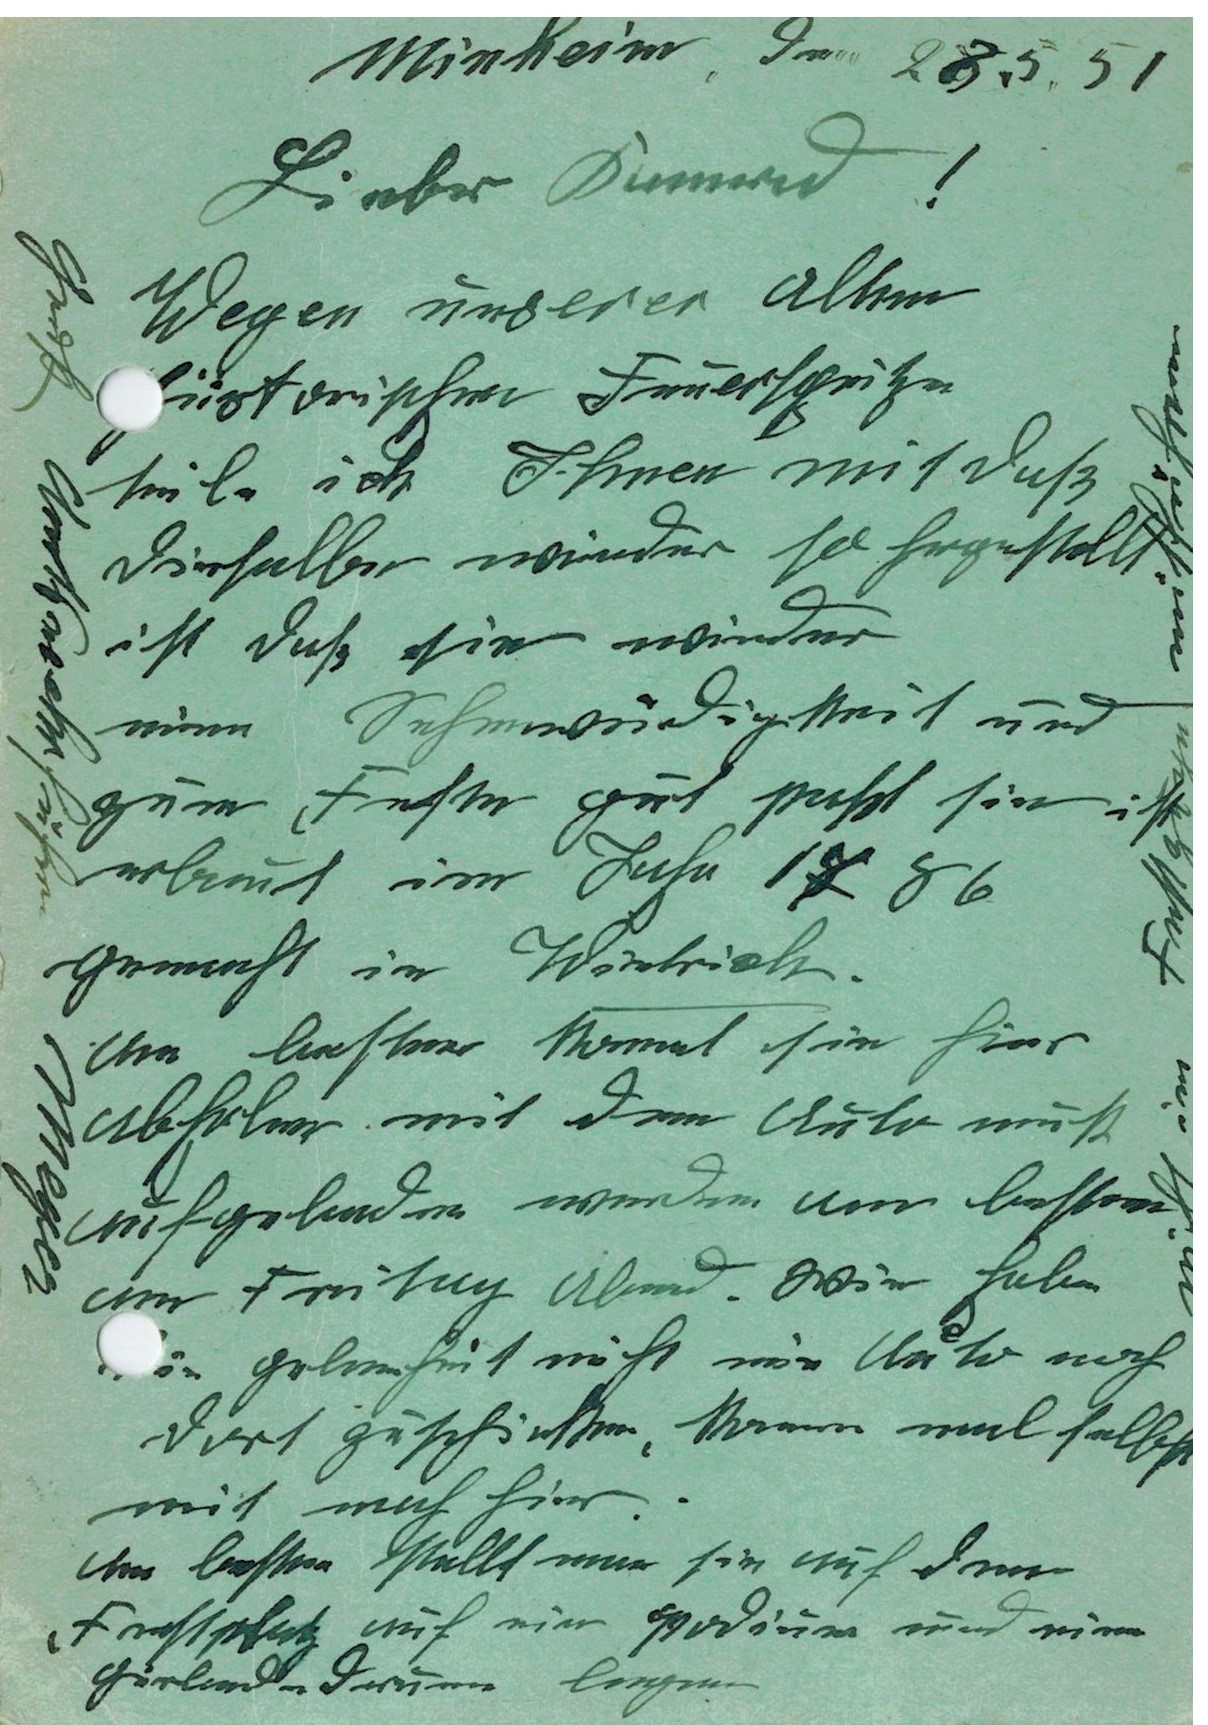 Minheim, den 28.5.51
Lieber Kamerad!
Wegen unserer alten
historischen Feuerspritze
teile ich Ihnen mit daß
dieselbe wieder so hergestellt
ist daß sie wieder
eine Sehenwürdigkeit und
zum Feste gut paßt sie ist
erbaut im Jahr 1786
gemacht in Wintrich.
Am besten kommt sie hier
abholen mit dem Auto muß
aufgeladen werden am besten
am Freitag Abend. Wir haben
die gelenheit nicht ein Auto nach
dort zuschicken, kommen mal selbst
mit nach hier.
Am besten stellt man sie auf dem
Festplatz auf ein Podium und eine
Girlande darum legen
Gruß Unterwehrführer Meyer